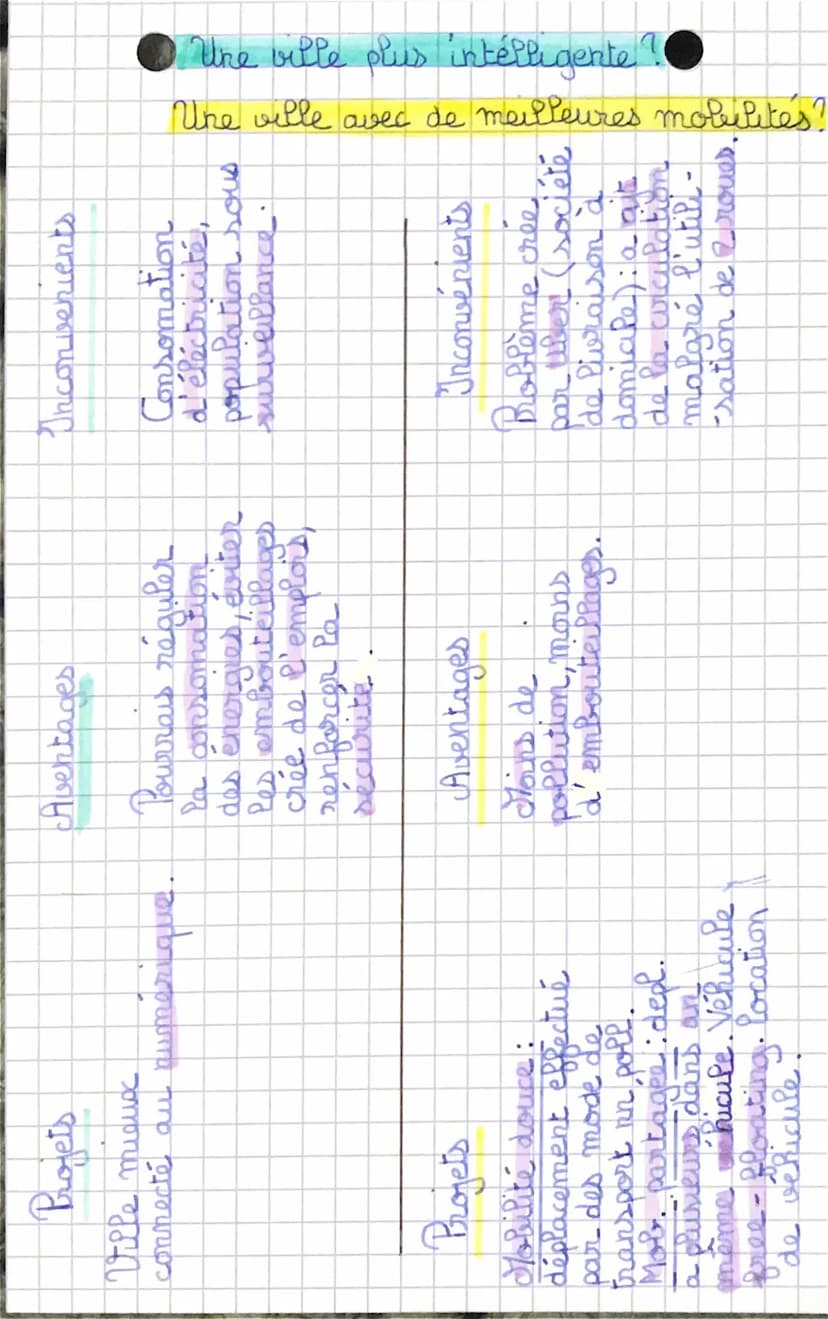 Une ville plus intélligente?
Une ville avec de meilleures mobilités?
Projets
Ville mieux
connecté au numérique.
Aventages
Pourrais réguler
la consomation
des énergies, éviter
les embouteillages
crée de l'emplois,
renforcer la
sécurité.
Inconvenients
Consomation
d'éléctricité,
population sous
surveillance.
Projets
Mobilité douce :
déplacement effectué
par des mode de
transport nn poll.
Mob. partagée : depl.
a plusieurs dans un
même véhicule. Véhicule
free-floating. location
de véhicule.
Aventages
Moins de
pollution, moins
d'embouteillages.
Inconvénients
Problème crée
par Uber (société
de livraison à
domicile) : a
de la circulation
malgré l'utili-
-sation de 2 roues.